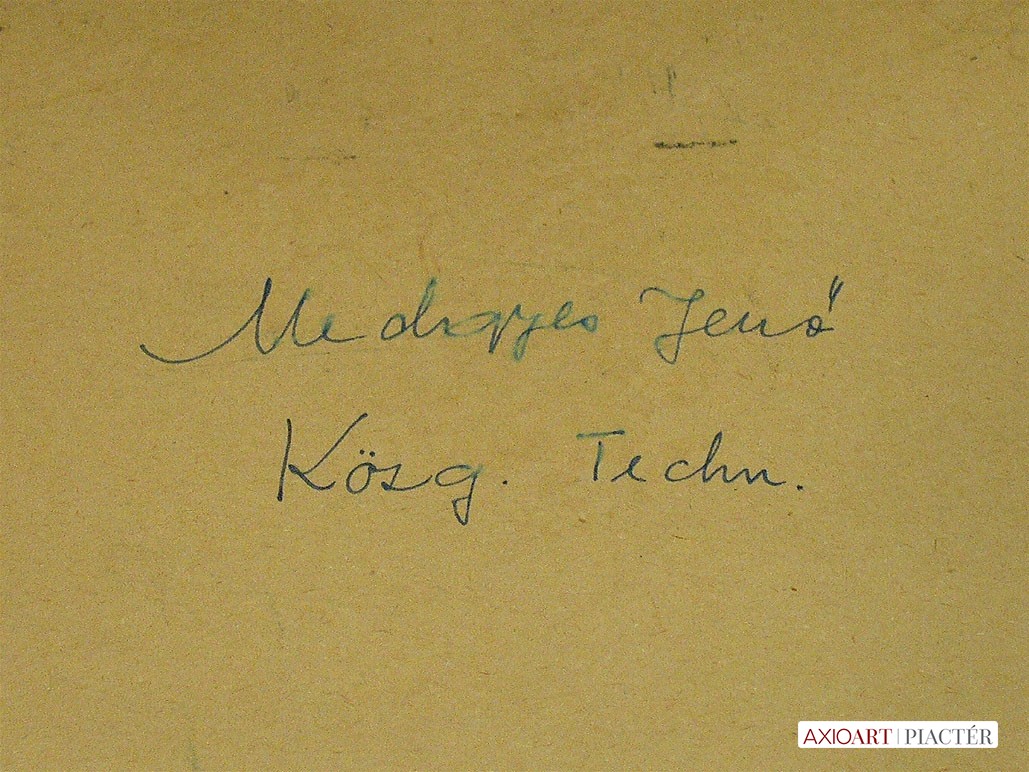 Medgyes Jenő
Közg. Techn.
AXIOART | PIACTÉR